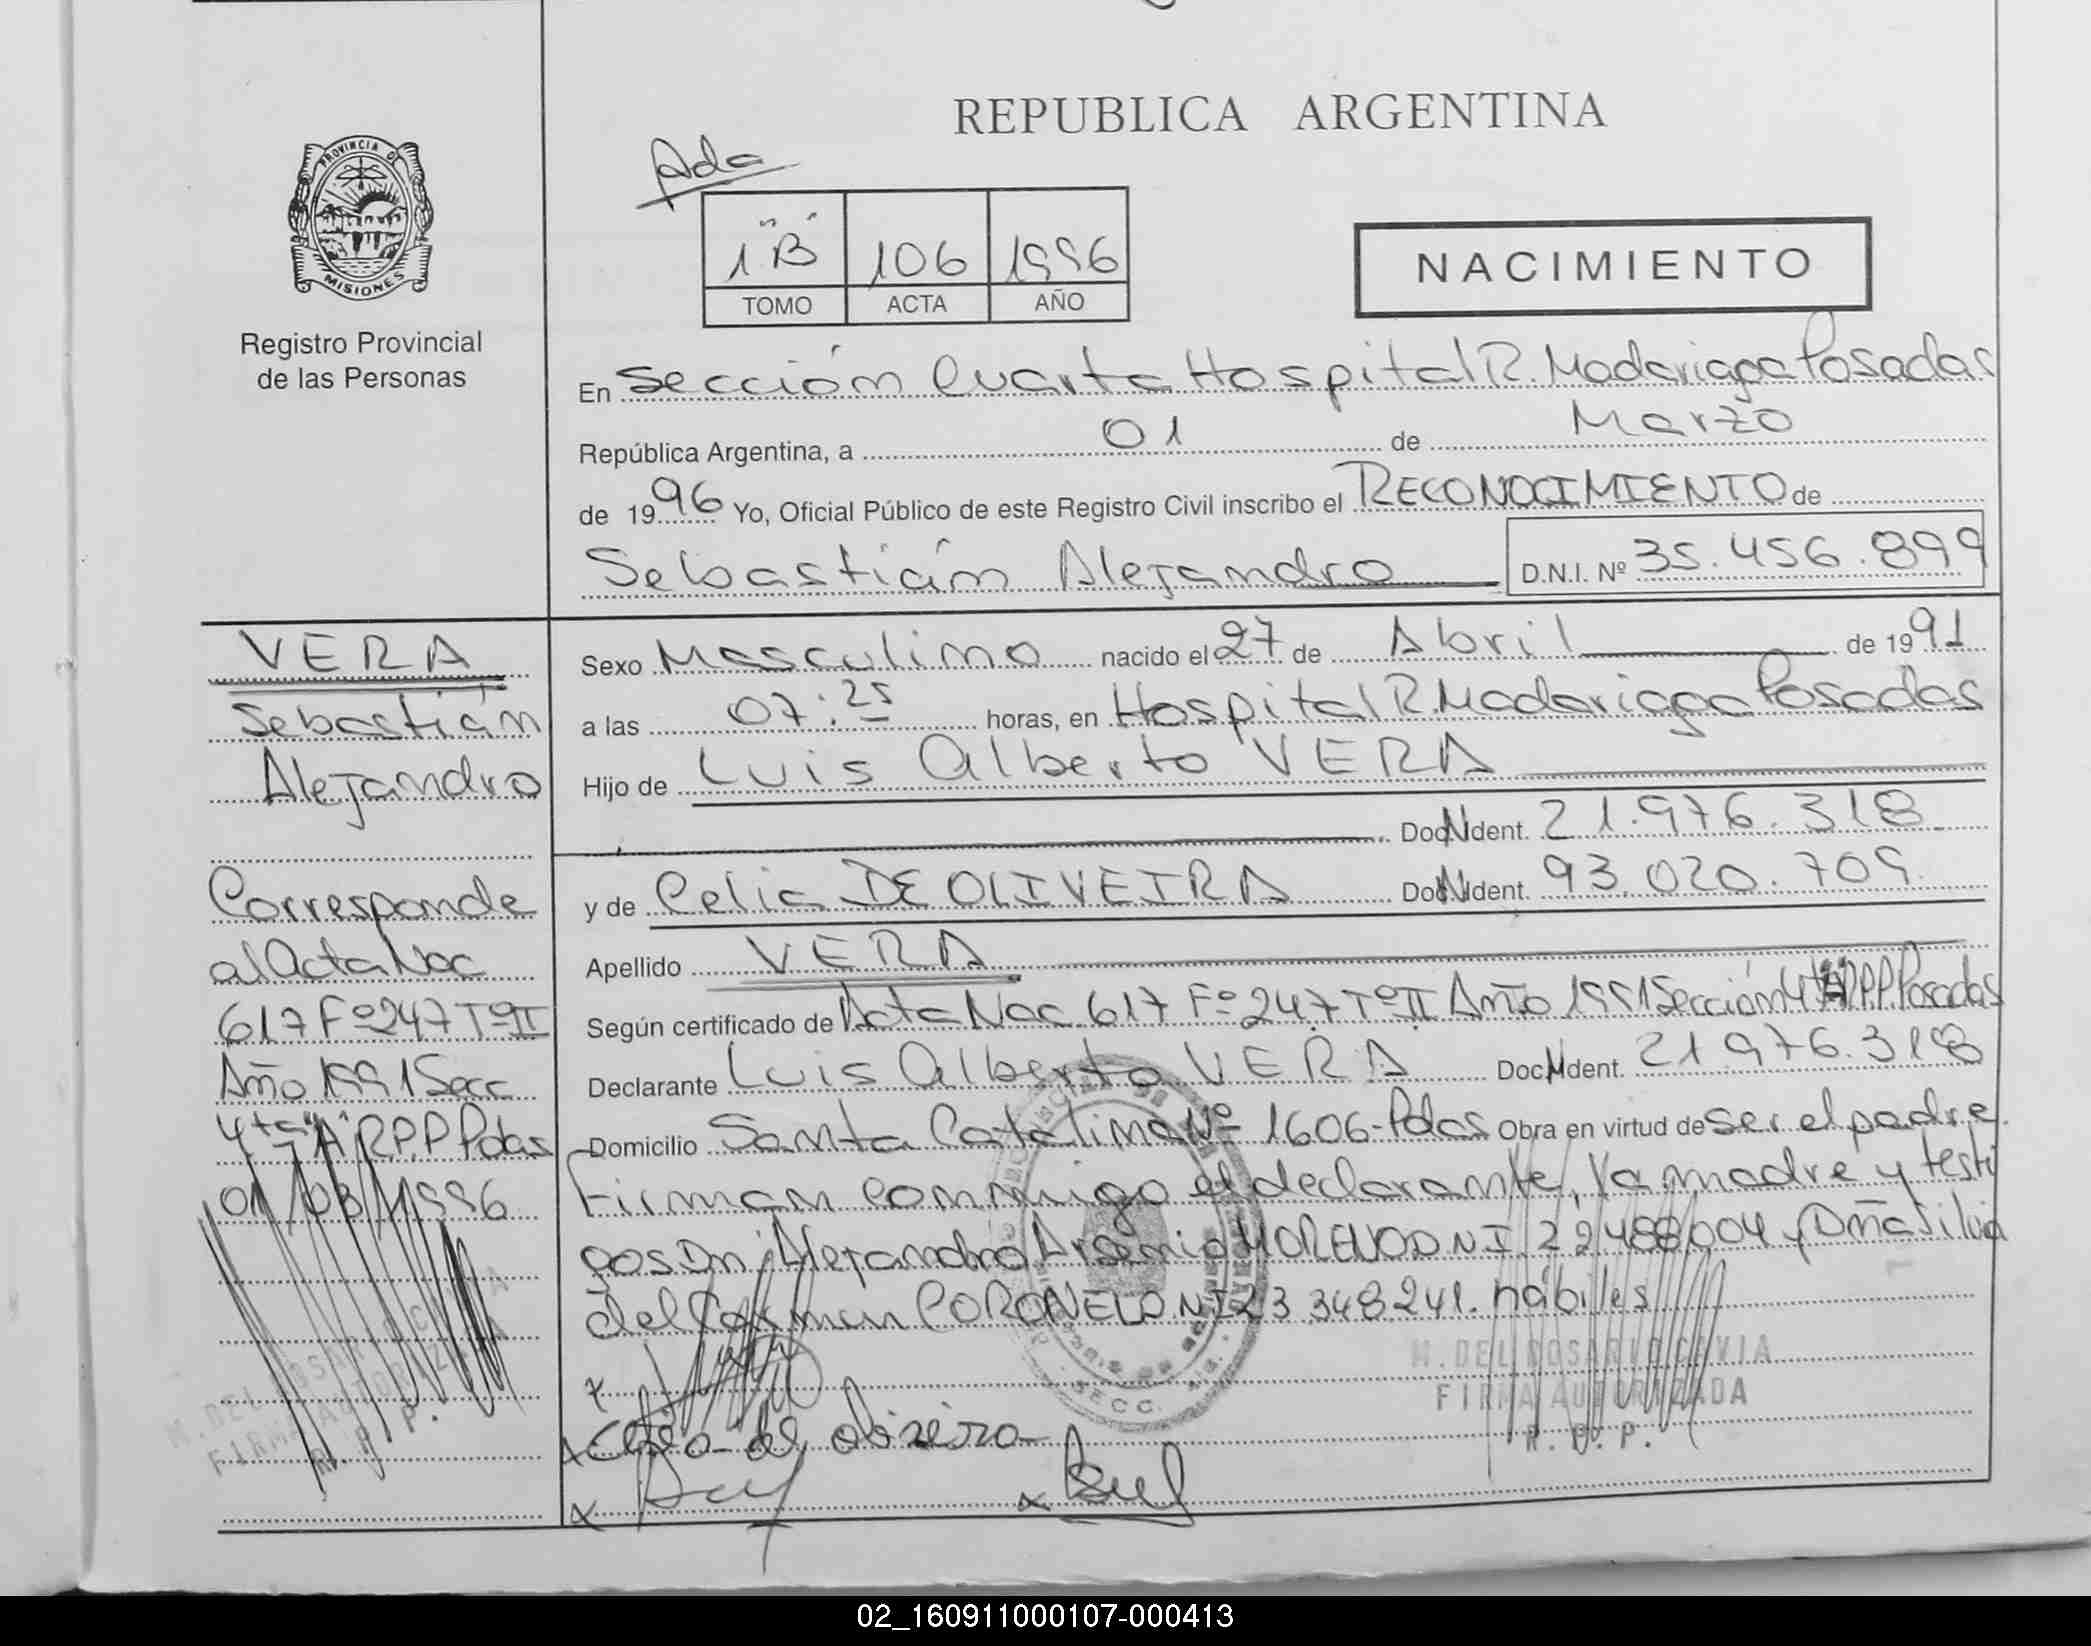 REPUBLICA ARGENTINA
PROVINCIA DE
MISIONES
Registro Provincial
de las Personas
Ada
1 "B" 106 1996
TOMO ACTA AÑO
NACIMIENTO
En Sección Cuarta Hospital R. Madariaga Posadas
República Argentina, a 01 de Marzo
de 1996 Yo, Oficial Público de este Registro Civil inscribo el RECONOCIMIENTO de
Sebastián Alejandro D.N.I. Nº 35.456.899
VERA
Sebastián
Alejandro
Corresponde
al Acta Nac
617 Fº 247 Tº II
Año 1991 Secc
4ta "A" R.P.P Pdas
01/03/1996
Sexo Masculino nacido el 27 de Abril de 1991
a las 07:25 horas, en Hospital R. Madariaga Posadas
Hijo de Luis Alberto VERA
Doc. Ident. 21.976.318
y de Celia DE OLIVEIRA Doc. Ident. 93.020.709
Apellido VERA
Según certificado de Acta Nac 617 Fº 247 Tº II Año 1991 Sección 4ta "A" R.P.P. Posadas
Declarante Luis Alberto VERA Doc. Ident. 21.976.318
Domicilio Santa Catalina Nº 1606-Pdas Obra en virtud de ser el padre.
Firman conmigo el declarante, la madre y testi
gos Dn Alejandro Arsenio MORENO DNI 22.488.004 y Dña Silvia
del Carmen CORONEL DNI 23.348.241. hábiles
M. DEL ROSARIO GAVIA
FIRMA AUTORIZADA
R. P. P.
M. DEL ROSARIO GAVIA
FIRMA AUTORIZADA
R. P. P.
SECC.
Celia de oliveira
02_160911000107-000413